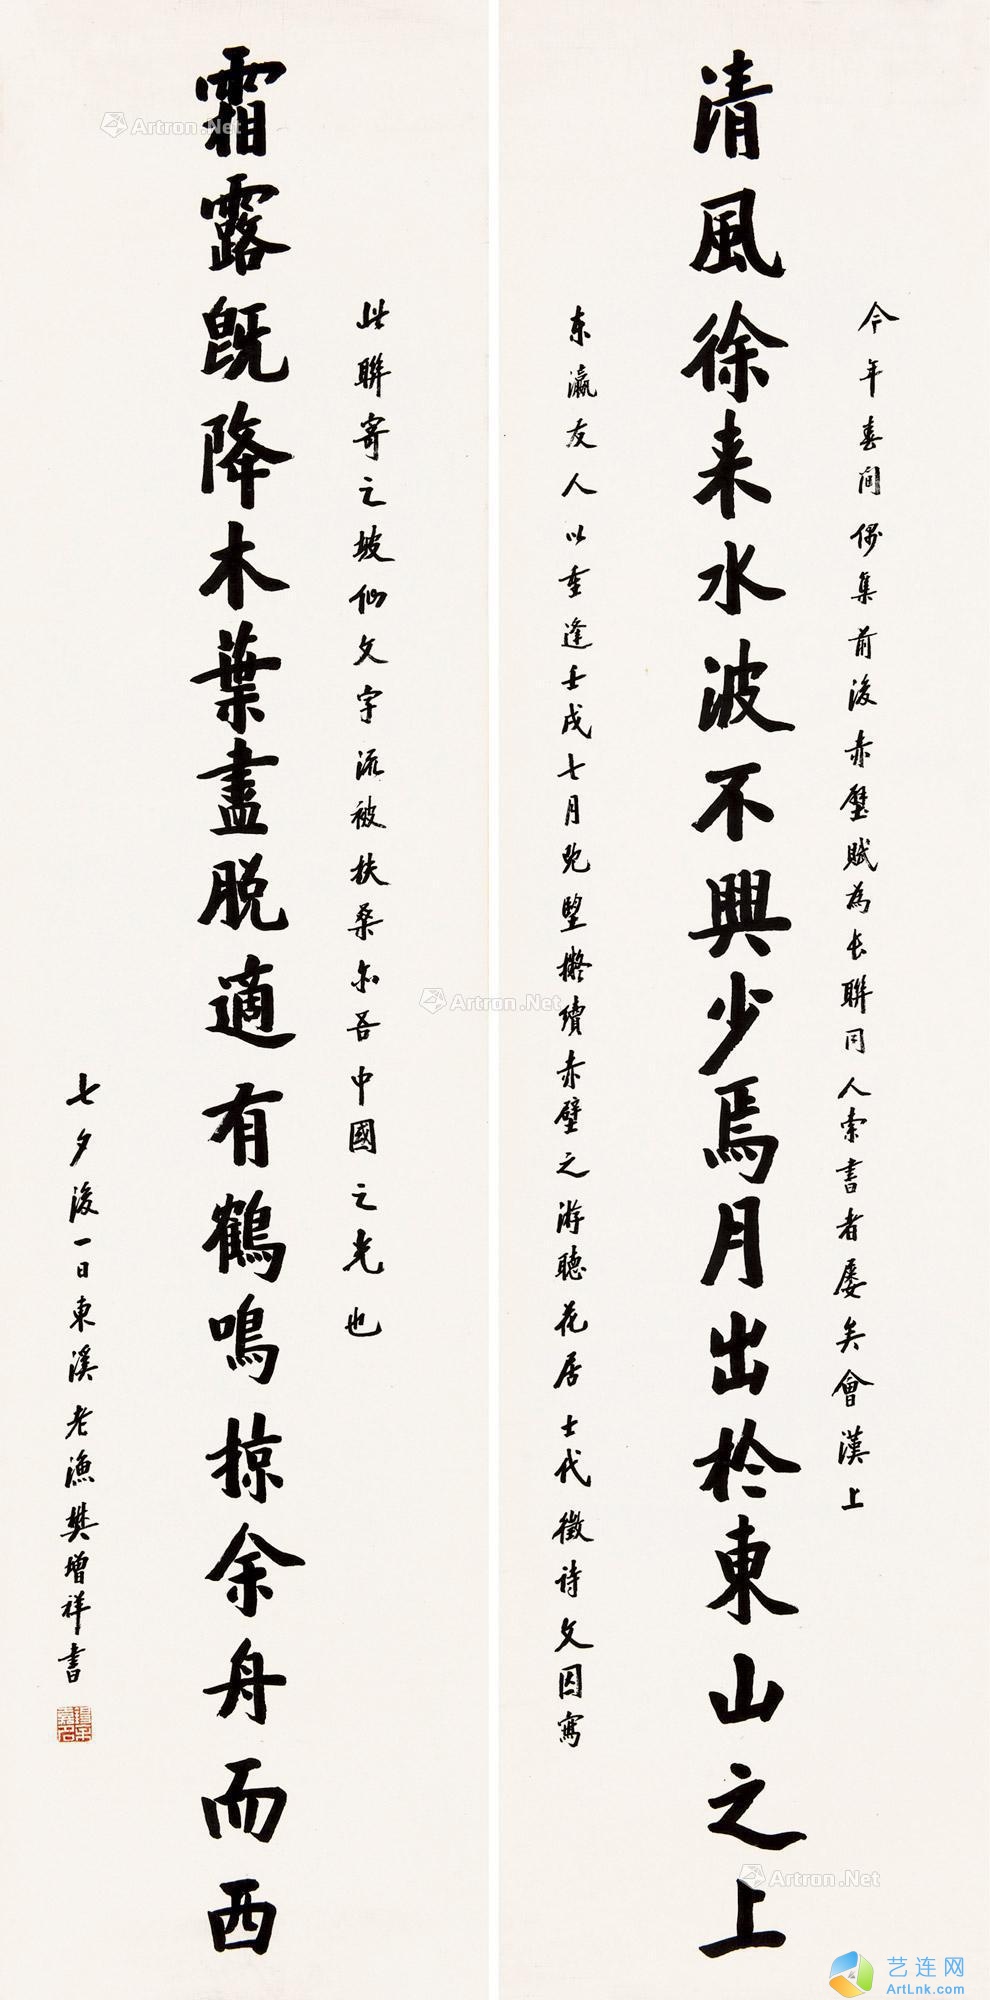 清風徐来水波不興少焉月出於東山之上
今年春間偶集前後赤壁賦為長聯同人索書者屢矣會漢上
東瀛友人以重逢壬戌七月既望擬續赤壁之游聽花居士代徵詩文因寫
霜露既降木葉盡脱適有鶴鳴掠余舟而西
此聯寄之坡仙文字流被扶桑亦吾中國之光也
七夕後一日東溪老漁樊增祥書
Artron.Net
Artron.Net
Artron.Net
艺连网
ArtLnk.com